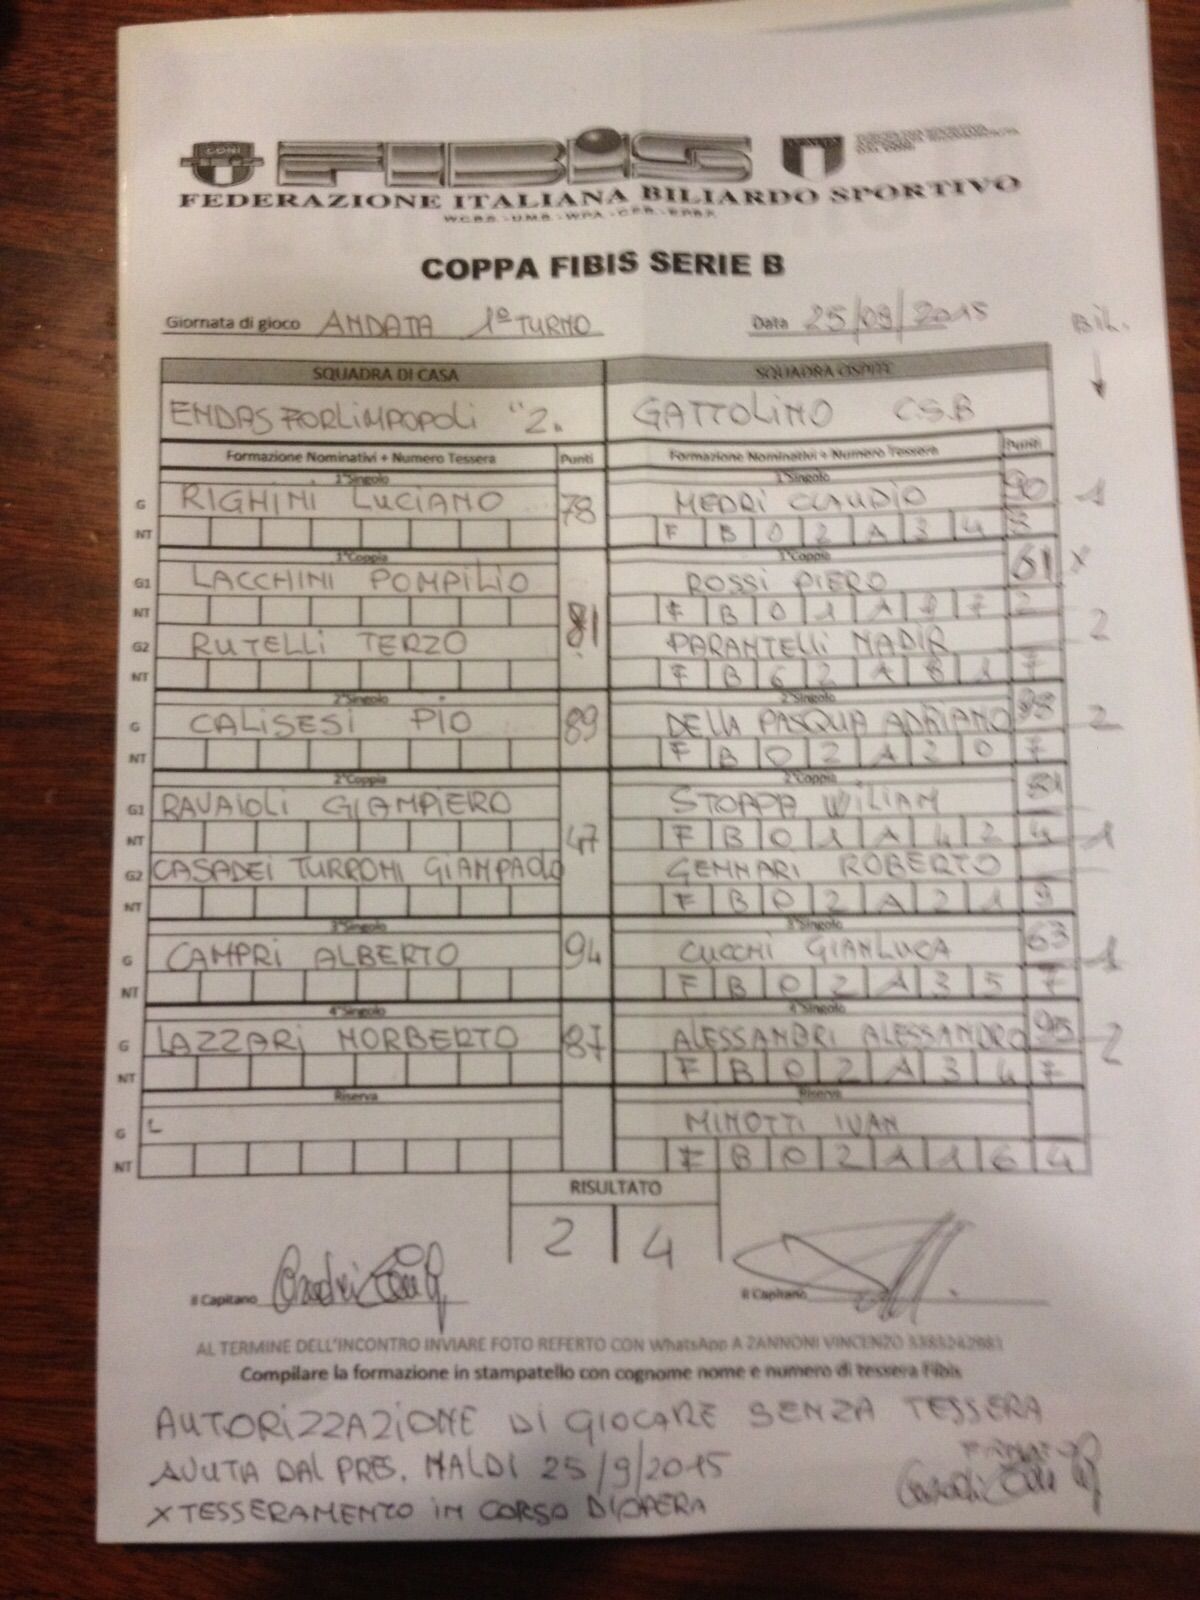 CONI FIBiS
FEDERAZIONE ITALIANA BILIARDO SPORTIVO
COPPA FIBIS SERIE B
Giornata di gioco ANDATA 1° TURNO Data 25/09/2015
Bil.
SQUADRA DI CASA SQUADRA OSPITE
ENDAS FORLIMPOPOLI "2" GATTOLINO C.S.B
Formazione Nominativi + Numero Tessera Punti Formazione Nominativi + Numero Tessera Punti
1°Singolo 1°Singolo
G RIGHINI LUCIANO 78 MEDRI CLAUDIO 90 1
NT F B 0 2 A 3 4
1°Coppia 1°Coppia
G1 LACCHINI POMPILIO 81 ROSSI PIERO 61 x
NT F B 0 1 A 7 2
G2 RUTELLI TERZO PARANTELLI NADIR 2
NT F B 6 2 A 8 1 7
2°Singolo 2°Singolo
G CALISESI PIO 89 DELLA PASQUA ADRIANO 98 2
NT F B 0 2 A 2 0 7
2°Coppia 2°Coppia
G1 RAVAIOLI GIAMPIERO 47 STOPPA WILIAM
NT F B 0 1 A 4 2 4 1
G2 CASADEI TURRONI GIAMPAOLO GENNARI ROBERTO
NT F B 0 2 A 2 1 9
3°Singolo 3°Singolo
G CAMPRI ALBERTO 94 CUCCHI GIANLUCA 63 1
NT F B 0 2 A 3 5 7
4°Singolo 4°Singolo
G LAZZARI NORBERTO 87 ALESSANDRI ALESSANDRO 95 2
NT F B 0 2 A 3 4 7
Riserva Riserva
G L MINOTTI IVAN
NT F B 0 2 1 1 6 4
RISULTATO
2 4
Il Capitano Il Capitano
AL TERMINE DELL'INCONTRO INVIARE FOTO REFERTO CON WhatsApp A ZANNONI VINCENZO 3383242981
Compilare la formazione in stampatello con cognome nome e numero di tessera Fibis
AUTORIZZAZIONE DI GIOCARE SENZA TESSERA
AVUTA DAL PRES. NALDI 25/9/2015
X TESSERAMENTO IN CORSO D'OPERA